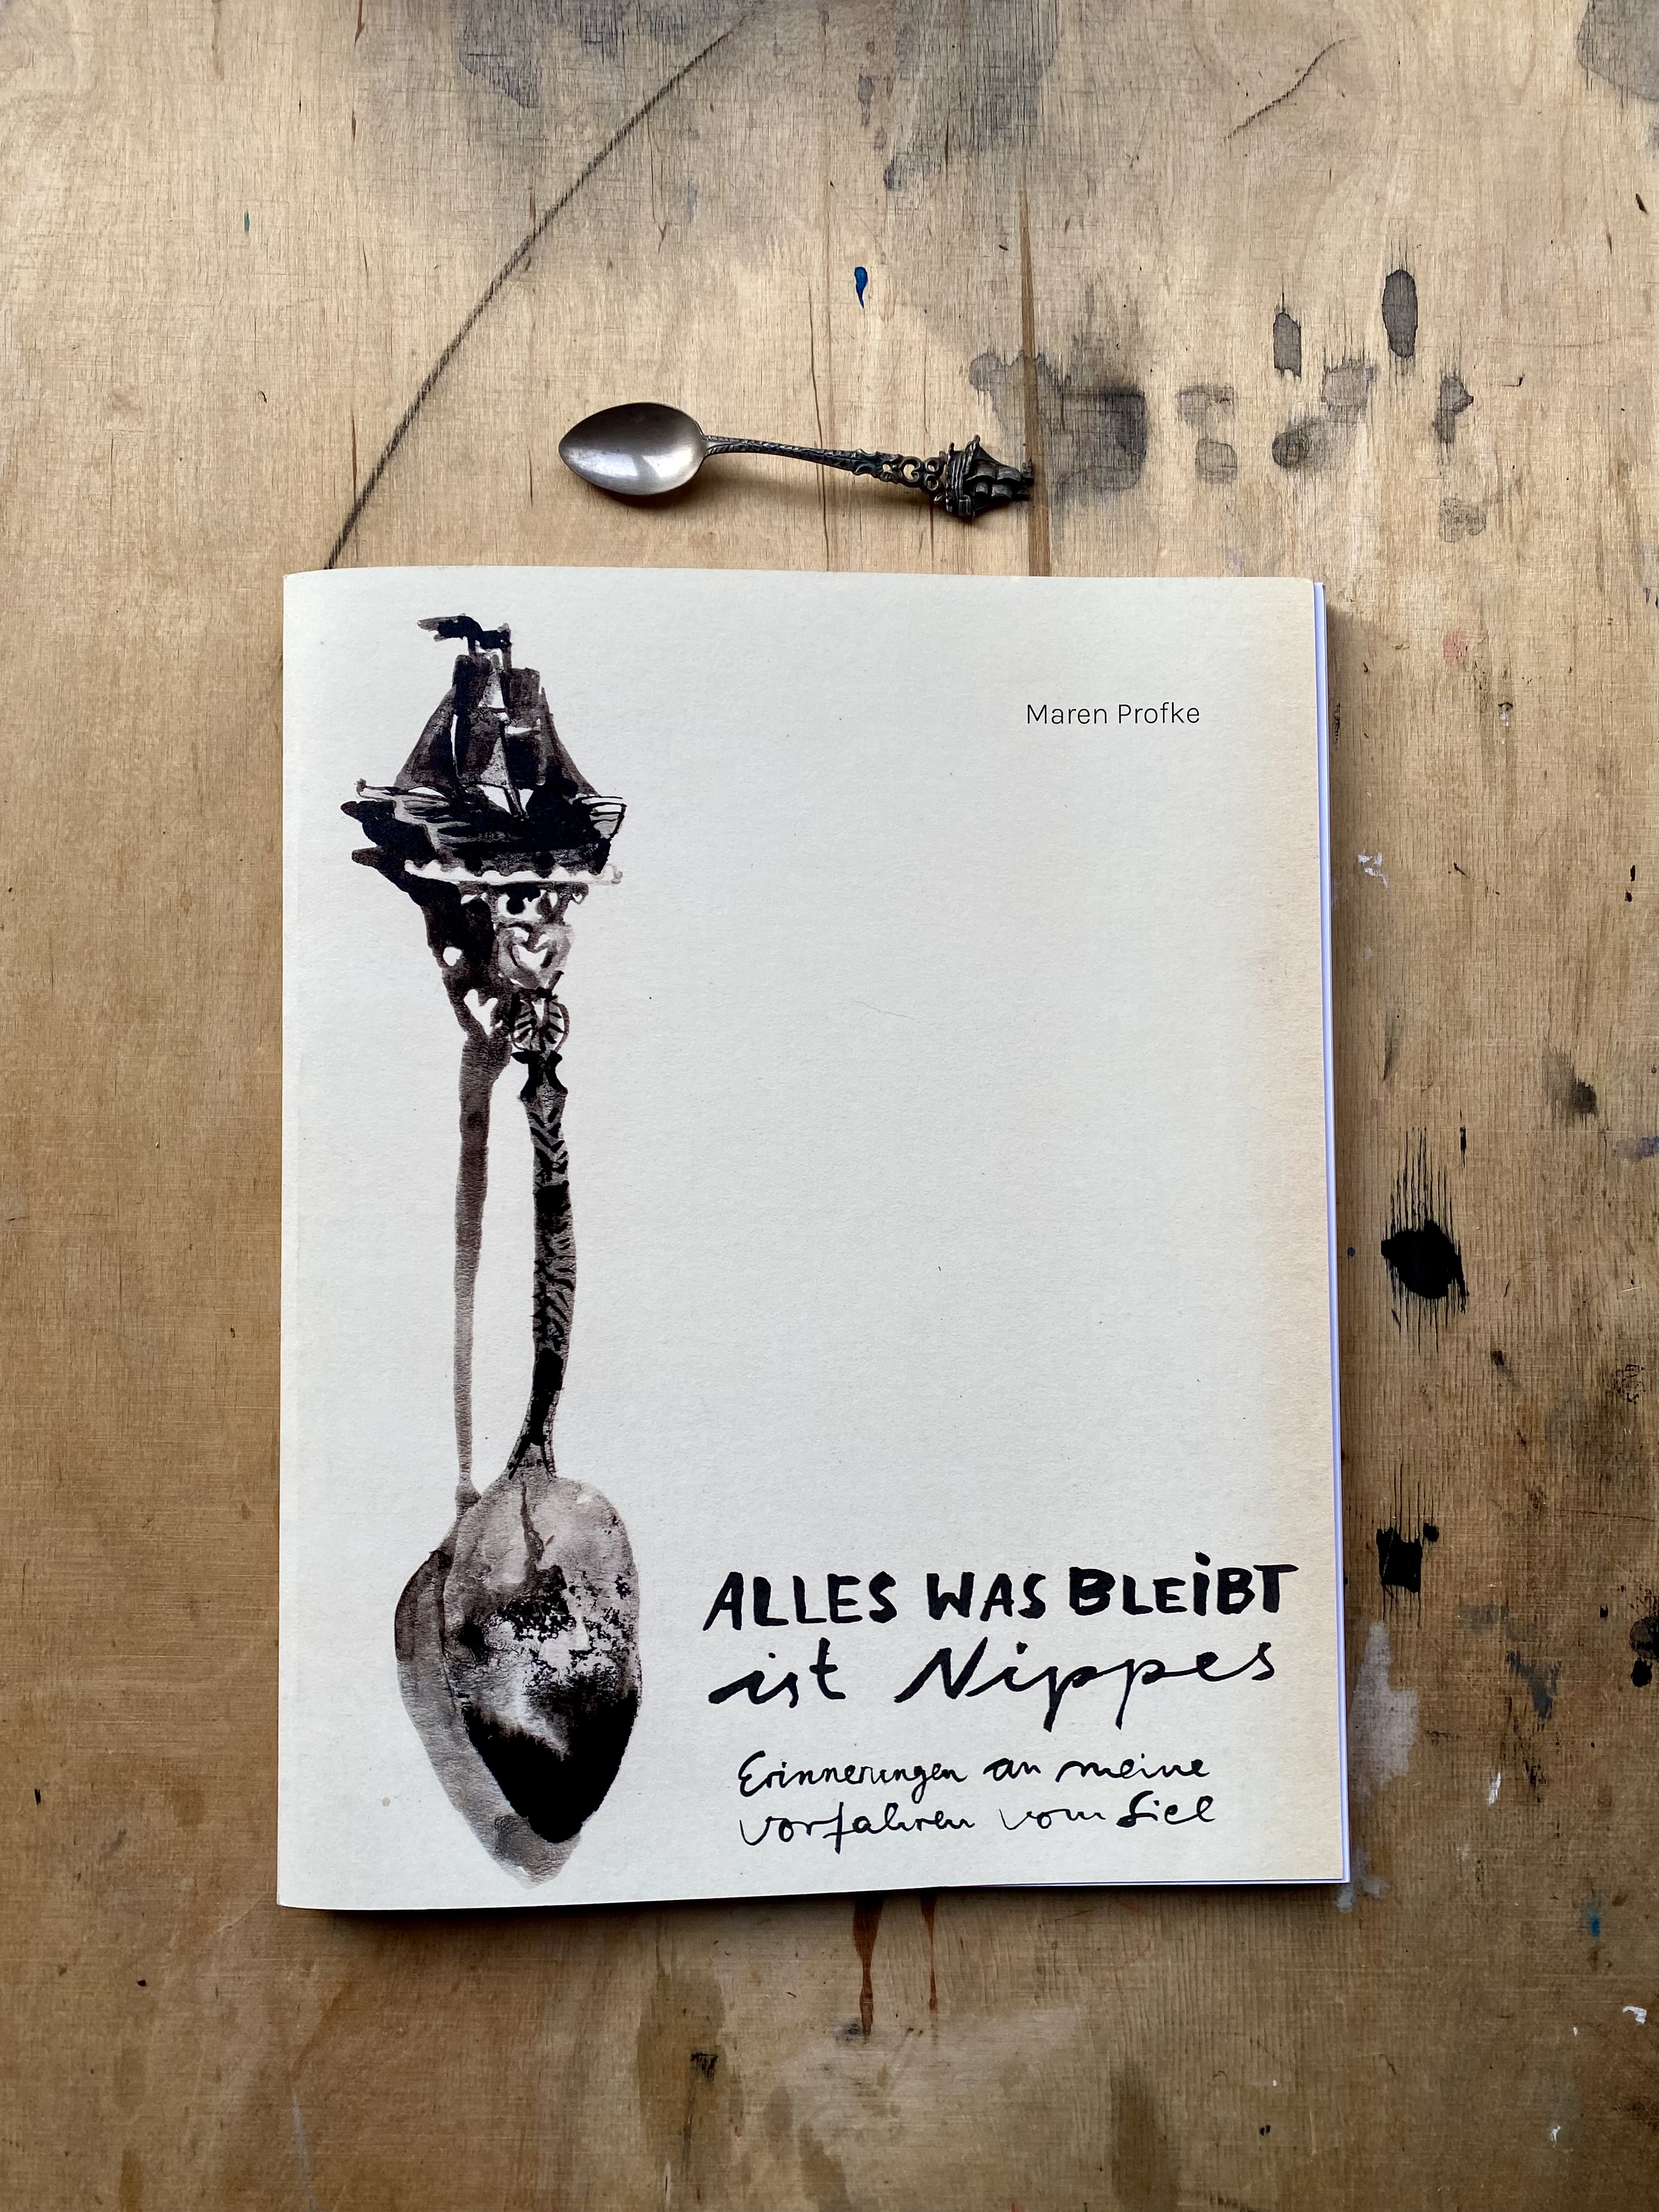 Maren Profke
ALLES WAS BLEiBT
ist Nippes
Erinnerungen an meine
Vorfahren vom Siel